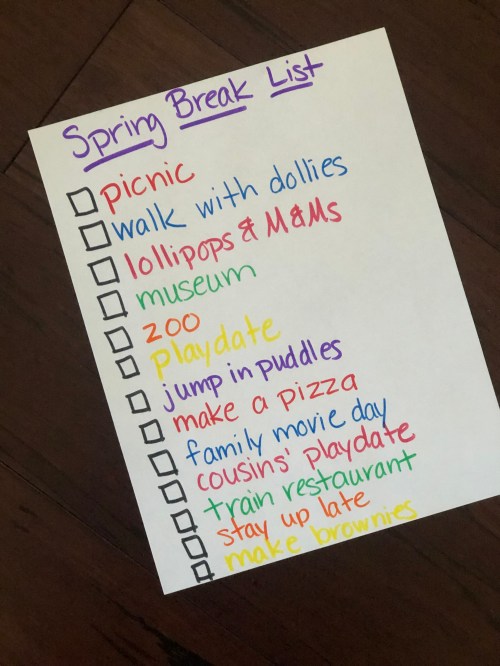 Spring Break List
picnic
walk with dollies
lollipops & M&Ms
museum
zoo
playdate
jump in puddles
make a pizza
family movie day
cousins' playdate
train restaurant
stay up late
make brownies